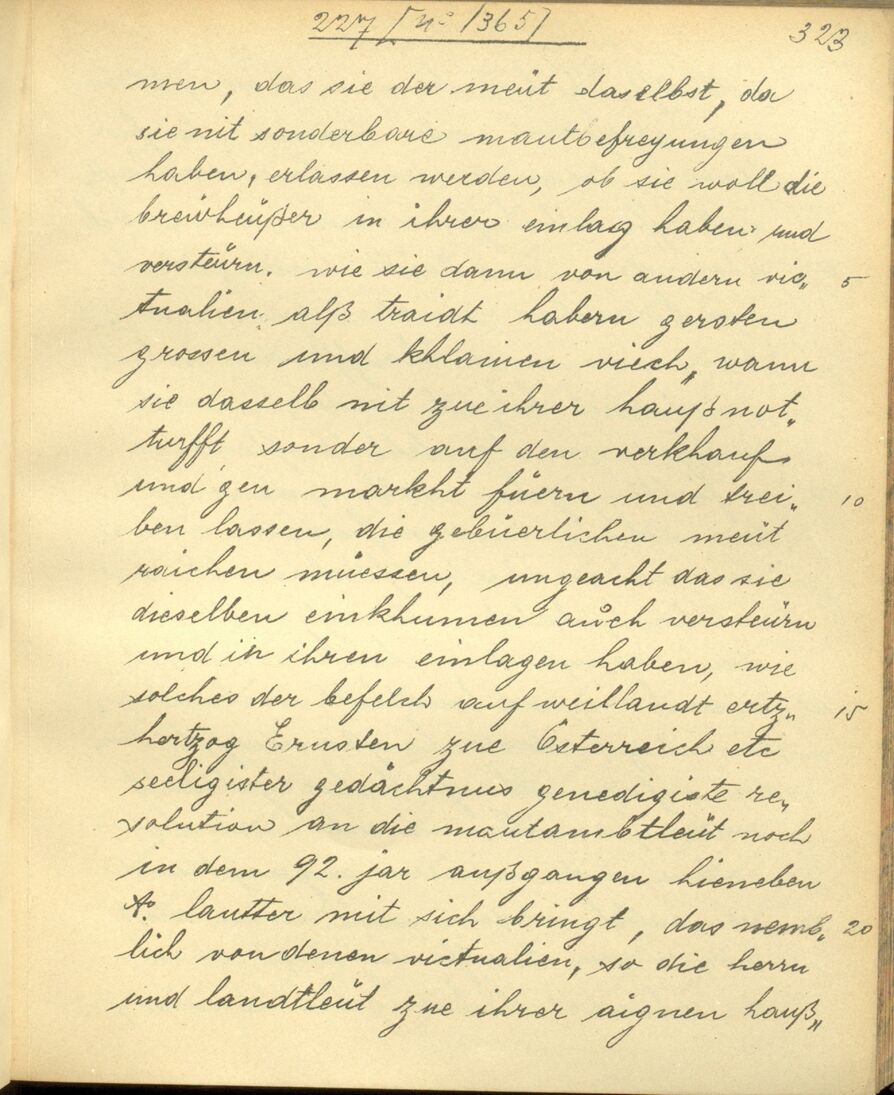 227 [nº 1365]
323
men, das sie der meüt daselbst, da
sie nit sonderbare mautbefreyungen
haben, erlassen werden, ob sie woll die
brewheüßer in ihrer einlag haben und
versteürn. wie sie dann von andern vic„ 5
tualien, alß traidt habern gersten
grossen und khlainen viech, wann
sie dasselb nit zue ihrer haußnot„
turfft sonder auf den verkhauf
und gen markht füern und trei„ 10
ben lassen, die gebüerlichen meüt
raichen müessen, ungeacht das sie
dieselben einkhumen auch versteürn
und in ihren einlagen haben, wie
solches der befelch auf weillandt ertz„ 15
hertzog Ernsten zue Österreich etc
seeligister gedächtnus genedigiste re„
solution an die mautambtleüt noch
in dem 92. jar außgangen hieneben
Aº. lautter mit sich bringt, das nemb„ 20
lich von denen victualien, so die herrn
und landtleüt zue ihrer aignen hauß„